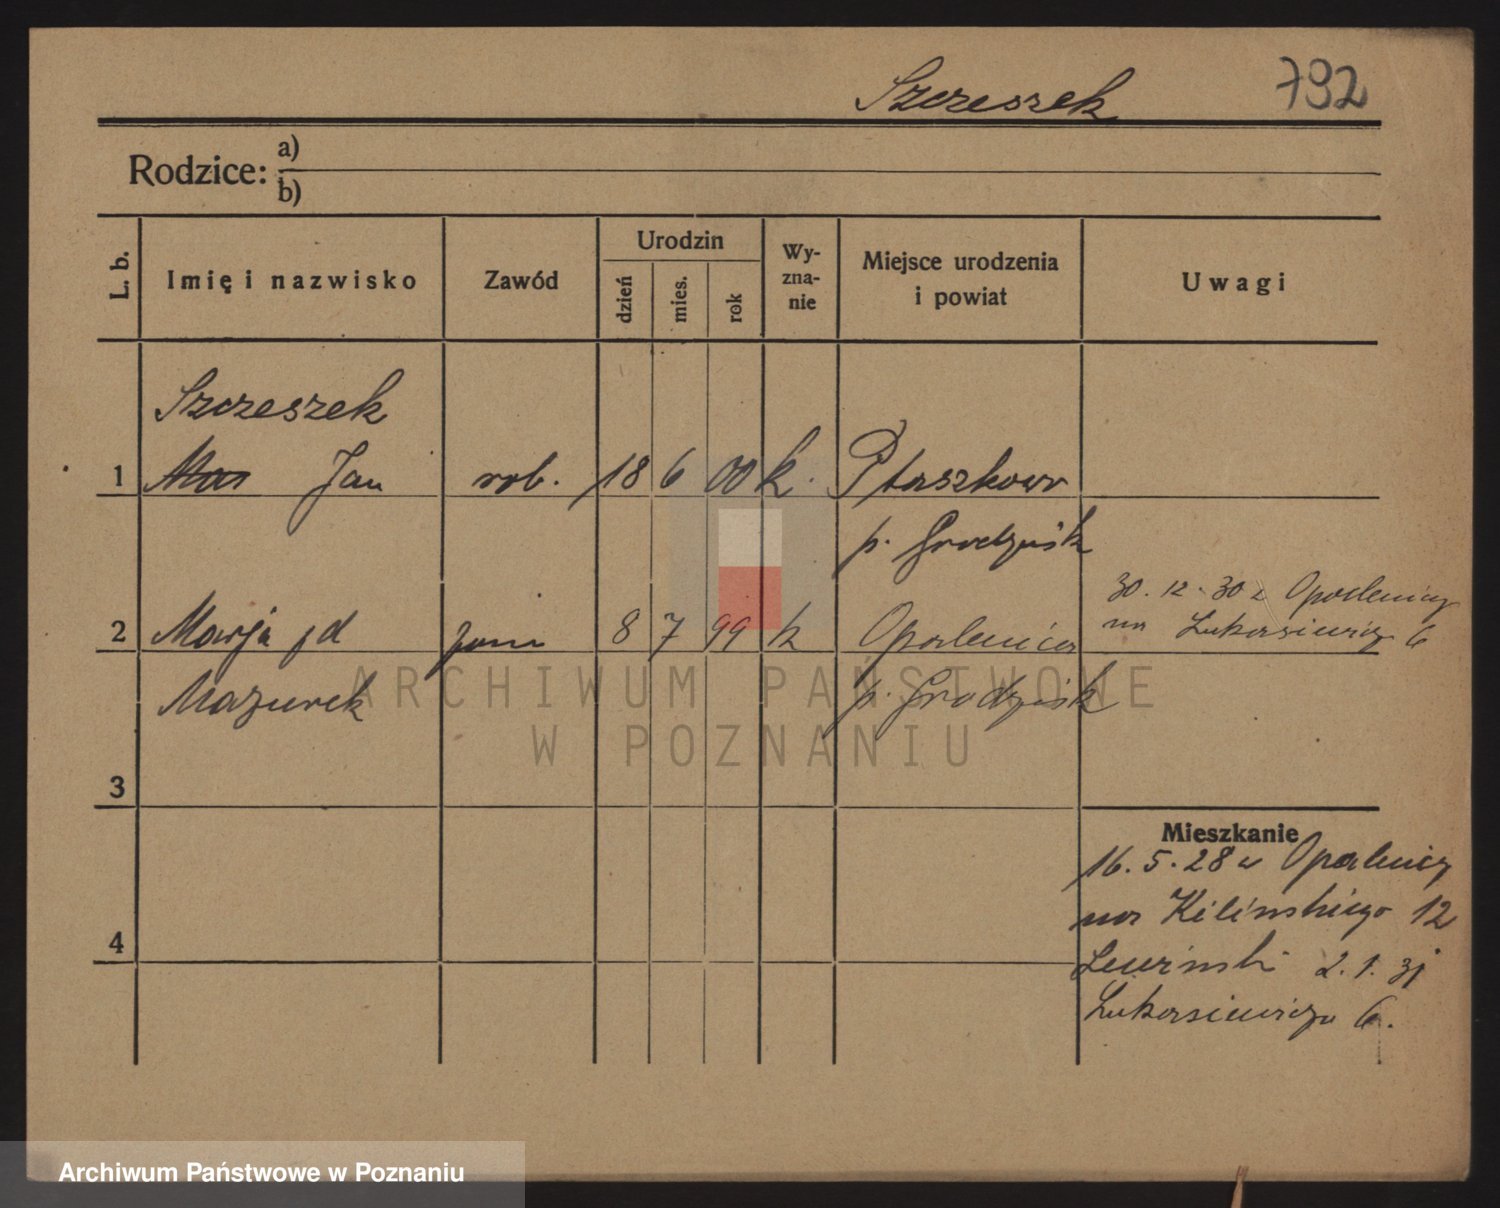 Szczeszek 792
Rodzice: a)
b)
L. b. Imię i nazwisko Zawód Urodzin dzień mies. rok Wy-zna-nie Miejsce urodzenia i powiat Uwagi
Szczeszek
1 Jan rob. 18 6 00 k. Ptaszkowo
p. Grodzisk
30. 12. 30 z Opalenicy
na Łukasiewicza 6
2 Marja żona 8 7 99 k Opalenica
Mazurek p. Grodzisk
3
Mieszkanie
16. 5. 28 w Opalenicy
na Kilińskiego 12
4
2. 1. 31
Łukasiewicza 6.
ARCHIWUM PAŃSTWOWE
W POZNANIU
Archiwum Państwowe w Poznaniu